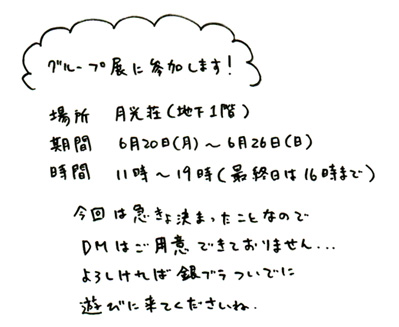 グループ展に参加します!
場所 月光荘(地下1階)
期間 6月20日(月)～6月26日(日)
時間 11時～19時(最終日は16時まで)
今回は急きょ決まったことなので
DMはご用意できておりません...
よろしければ銀ブラついでに
遊びに来てくださいね.